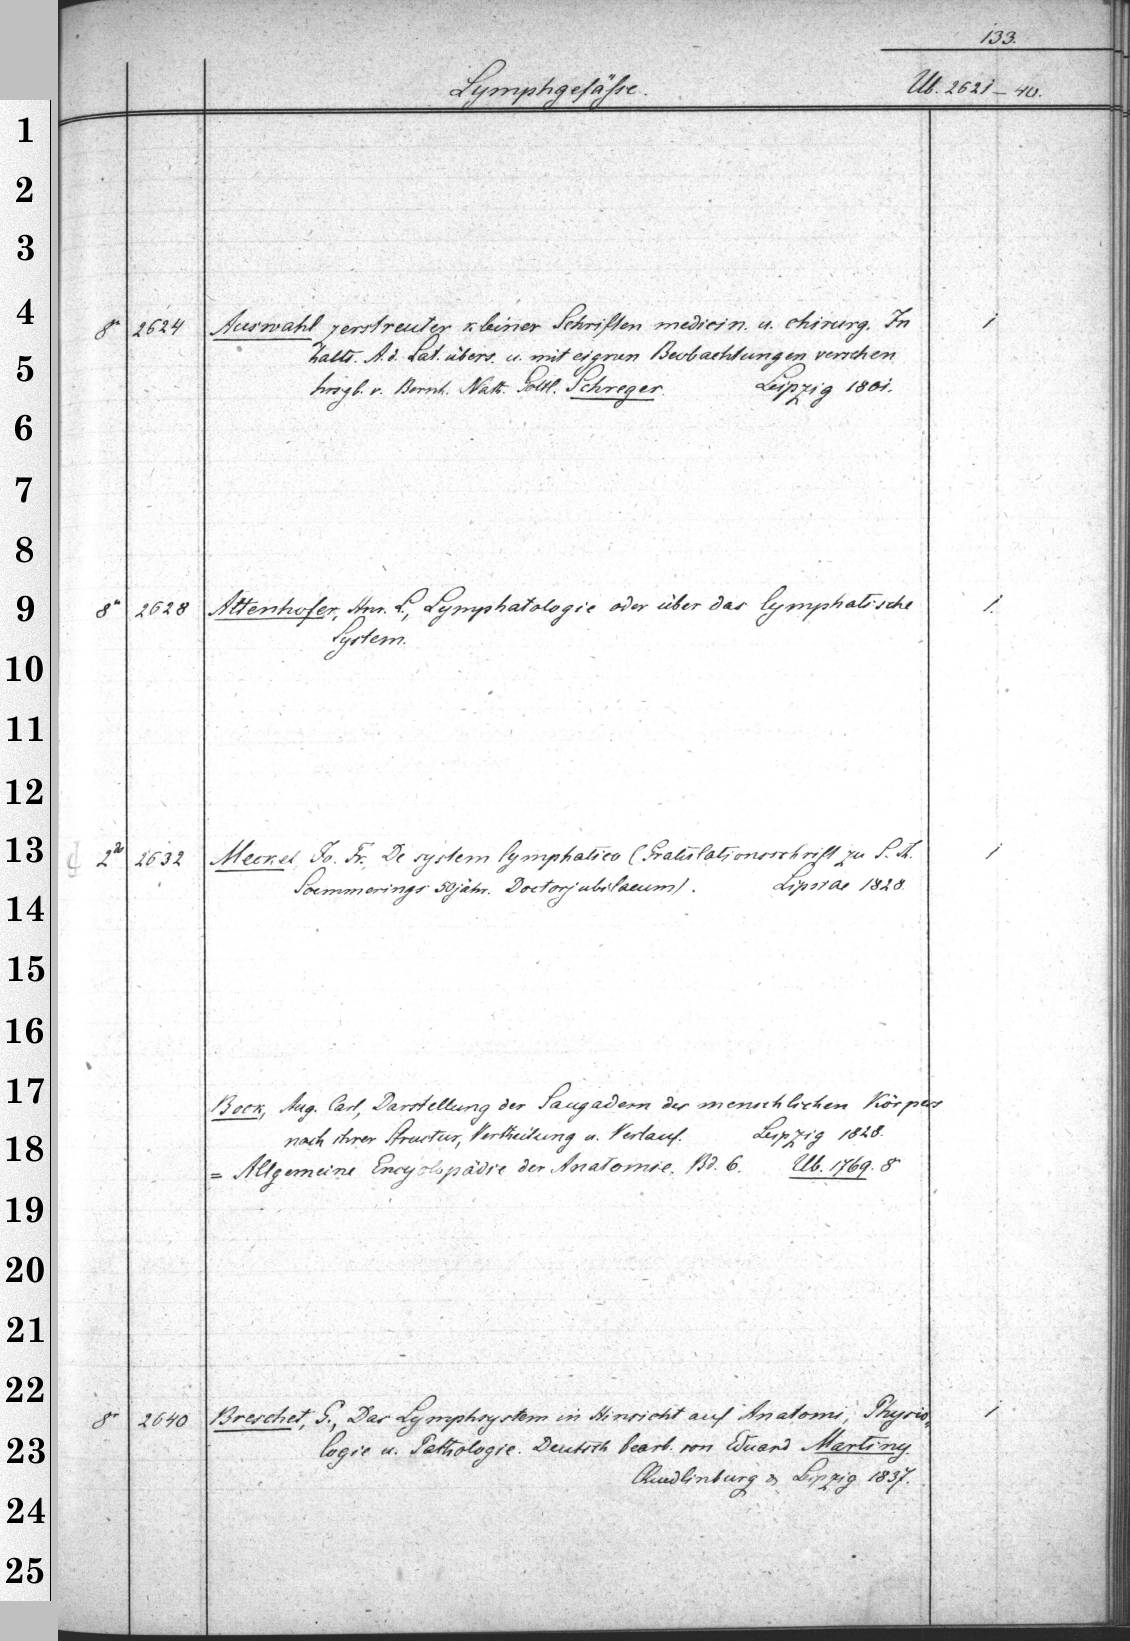 133.
Lymphgefässe. Ub. 2621–40.
1
2
3
4
5
6
7
8
9
10
11
12
13
14
15
16
17
18
19
20
21
22
23
24
25
8° 2624 Auswahl zerstreuter kleiner Schriften medicin. u. chirurg. In 1
halts. A. d. Lat. übers. u. mit eignen Beobachtungen versehen
hrsgb. v. Bernh. Nath. Gottl. Schreger. Leipzig 1801.
8° 2628 Altenhofer, L., Lymphatologie oder über das lymphatische 1.
System.
2° 2632 Meckel, Jo. Fr., De system lymphatico (Gratulationsschrift zu S. Th. 1
Soemmerings 50jähr. Doctorjubilaeum). Lipsiae 1828.
Bock, Aug. Carl, Darstellung der Saugadern des menschlichen Körpers
nach ihrer Structur, Vertheilung u. Verlauf. Leipzig 1828.
= Allgemeine Encyclopädie der Anatomie. Bd. 6. Ub. 1769. 8°
8° 2640 Breschet, G., Das Lymphsystem in Hinsicht auf Anatomi, Physio- 1
logie u. Pathologie. Deutsch bearb. von Eduard Martiny
Quedlinburg & Leipzig 1837.